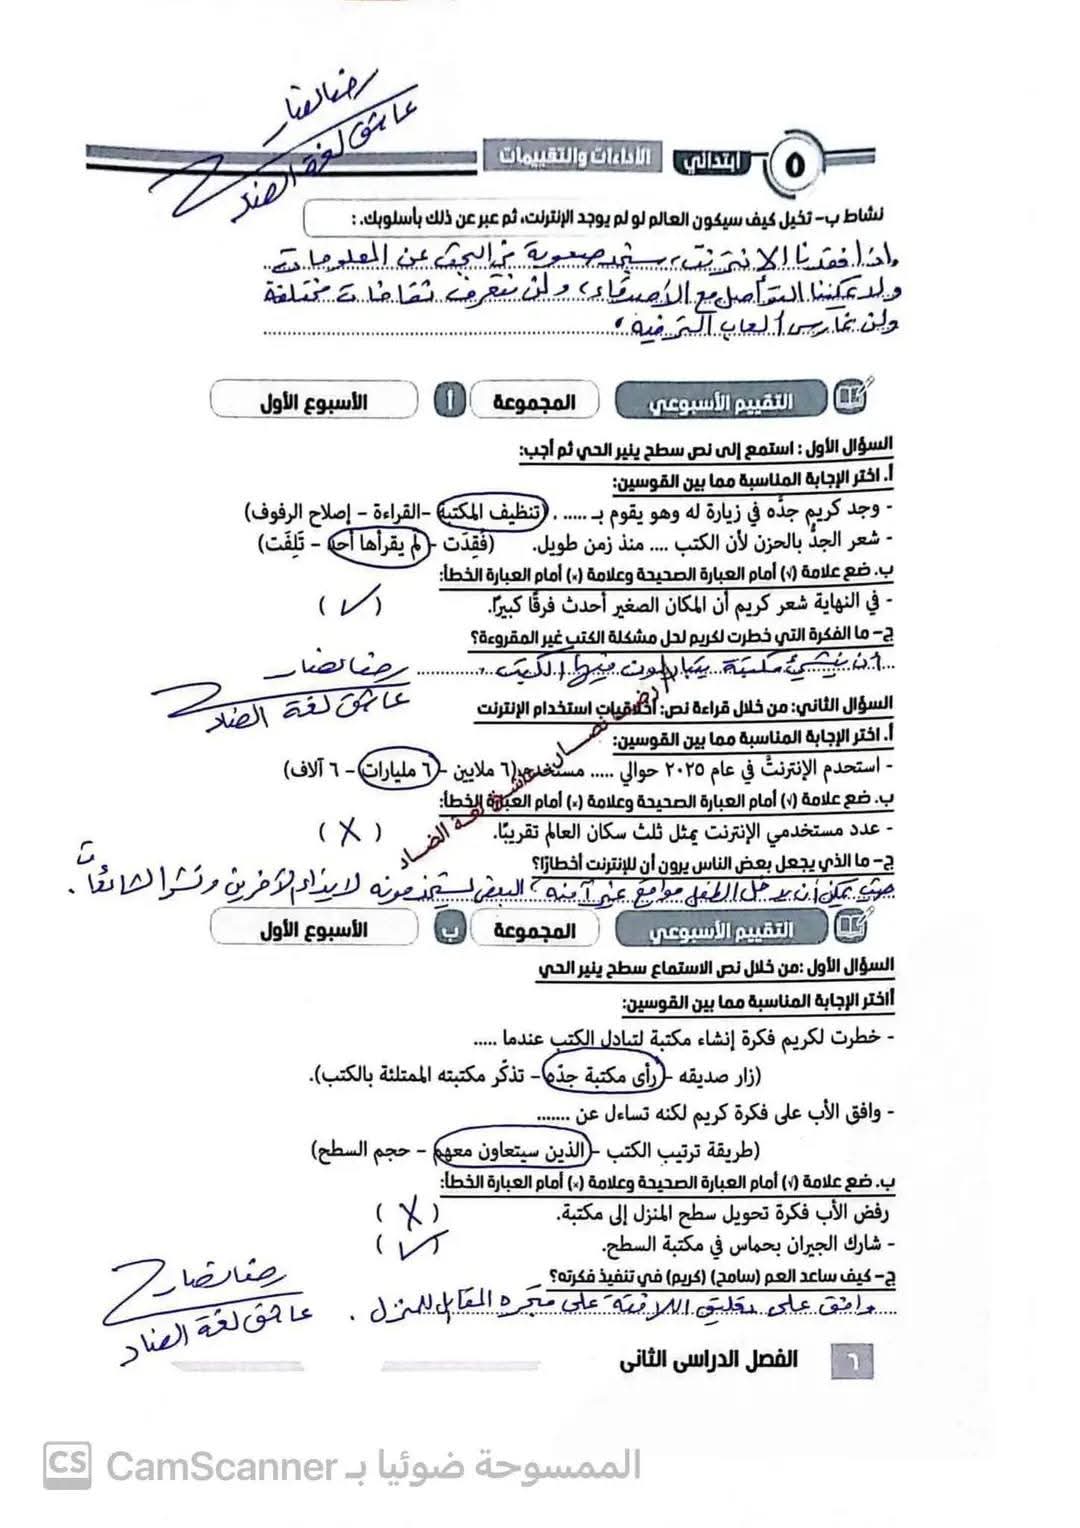 رضا نصار
عاشق لغة الضاد
٥ ابتدائي الأداءات والتقييمات
نشاط ب- تخيل كيف سيكون العالم لو لم يوجد الإنترنت، ثم عبر عن ذلك بأسلوبك. :
إذا فقدنا الإنترنت، ستجد صعوبة في البحث عن المعلومات
ولا يمكننا التواصل مع الأصدقاء، ولن نتعرف ثقافات مختلفة
ولن نمارس ألعاب الترفيه.
التقييم الأسبوعي المجموعة أ الأسبوع الأول
السؤال الأول : استمع إلى نص سطح ينير الحي ثم أجب:
أ. اختر الإجابة المناسبة مما بين القوسين:
- وجد كريم جدَّه في زيارة له وهو يقوم بـ ..... . (تنظيف المكتبة –القراءة – إصلاح الرفوف)
- شعر الجدُّ بالحزن لأن الكتب .... منذ زمن طويل. (فُقِدَت – لم يقرأها أحد – تَلِفَت)
ب. ضع علامة (√) أمام العبارة الصحيحة وعلامة (×) أمام العبارة الخطأ:
- في النهاية شعر كريم أن المكان الصغير أحدث فرقًا كبيرًا. (√)
ج- ما الفكرة التي خطرت لكريم لحل مشكلة الكتب غير المقروءة؟
أن ينشئ مكتبة يتبادلون فيها الكتب.
رضا نصار
عاشق لغة الضاد
السؤال الثاني: من خلال قراءة نص: أخلاقيات استخدام الإنترنت
أ. اختر الإجابة المناسبة مما بين القوسين:
- استحدم الإنترنتَ في عام ٢٠٢٥ حوالي ..... مستخدم(٦ ملايين – ٦ مليارات – ٦ آلاف)
أ/ رضا نصار عاشق لغة الضاد
ب. ضع علامة (√) أمام العبارة الصحيحة وعلامة (×) أمام العبارة الخطأ:
- عدد مستخدمي الإنترنت يمثل ثلث سكان العالم تقريبًا. (×)
ج- ما الذي يجعل بعض الناس يرون أن للإنترنت أخطارًا؟
يمكن أن يدخل الطفل مواقع غير آمنه، البعض يستخدمونه لإيذاء الآخرين ونشر الشائعات.
التقييم الأسبوعي المجموعة ب الأسبوع الأول
السؤال الأول :من خلال نص الاستماع سطح ينير الحي
أاختر الإجابة المناسبة مما بين القوسين:
- خطرت لكريم فكرة إنشاء مكتبة لتبادل الكتب عندما .....
(زار صديقه – رأى مكتبة جدّه – تذكّر مكتبته الممتلئة بالكتب).
- وافق الأب على فكرة كريم لكنه تساءل عن .......
(طريقة ترتيب الكتب – الذين سيتعاون معهم – حجم السطح)
ب. ضع علامة (√) أمام العبارة الصحيحة وعلامة (×) أمام العبارة الخطأ:
رفض الأب فكرة تحويل سطح المنزل إلى مكتبة. (×)
- شارك الجيران بحماس في مكتبة السطح. (√)
ج- كيف ساعد العم (سامح) (كريم) في تنفيذ فكرته؟
وافق على تعليق اللافتة على متجره المقابل للمنزل.
رضا نصار
عاشق لغة الضاد
٦ الفصل الدراسى الثانى
CS الممسوحة ضوئيا بـ CamScanner